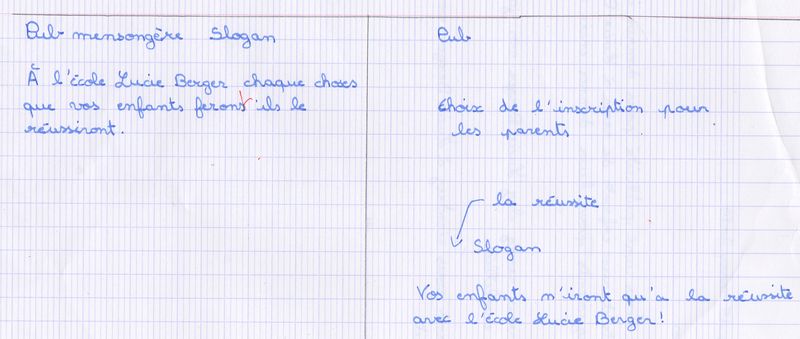 Pub mensongère Slogan
À l'école Lucie Berger chaque choses
que vos enfants ferons ils le
réussiront.
Pub
Choix de l'inscription pour
les parents
la réussite
Slogan
Vos enfants n'iront qu'a la réussite
avec l'école Lucie Berger!